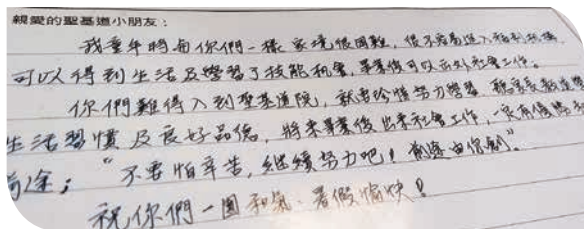 親愛的聖基道小朋友：
我童年時每你們一樣家境很困難，很不容易進入福利機構
可以得到生活及學習了技能机會，畢業後可以出外社會工作。
你們難得入到聖基道院，就要珍惜努力學習，聽家長教導
生活習慣及良好品德，將來畢業後出來社會工作，一定有
前途；"不要怕辛苦，繼續努力吧！前途由你創"
祝你們一團和氣，暑假愉快！